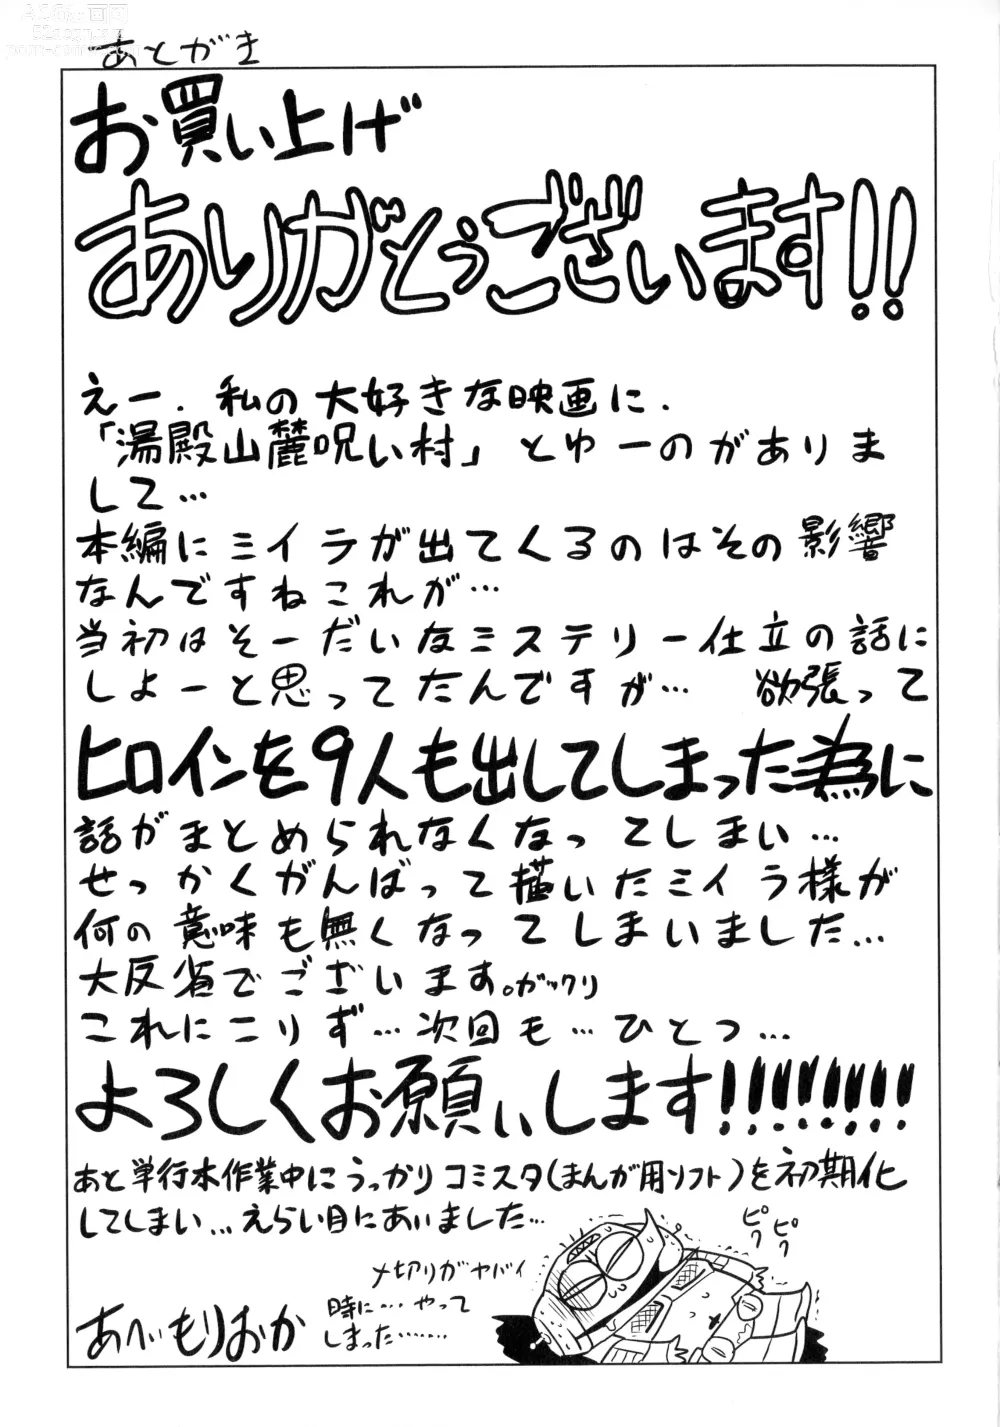 あとがき
お買い上げ
ありがとうございます!!
えー、私の大好きな映画に、
「湯殿山麓呪い村」とゆーのがありま
して…
本編にミイラが出てくるのはその影響
なんですねこれが…
当初はそーだいなミステリー仕立の話に
しよーと思ってたんですが… 欲張って
ヒロインを9人も出してしまった為に
話がまとめられなくなってしまい…
せっかくがんばって描いたミイラ様が
何の意味も無くなってしまいました…
大反省でございます。ガックリ
これにこりず…次回も…ひとつ…
よろしくお願いします!!!!!!!!
あと単行本作業中にうっかりコミスタ(まんが用ソフト)を初期化
してしまい…えらい目にあいました…
ピクピク
〆切りがヤバイ
時に…やって
しまった……
あへいもりおか